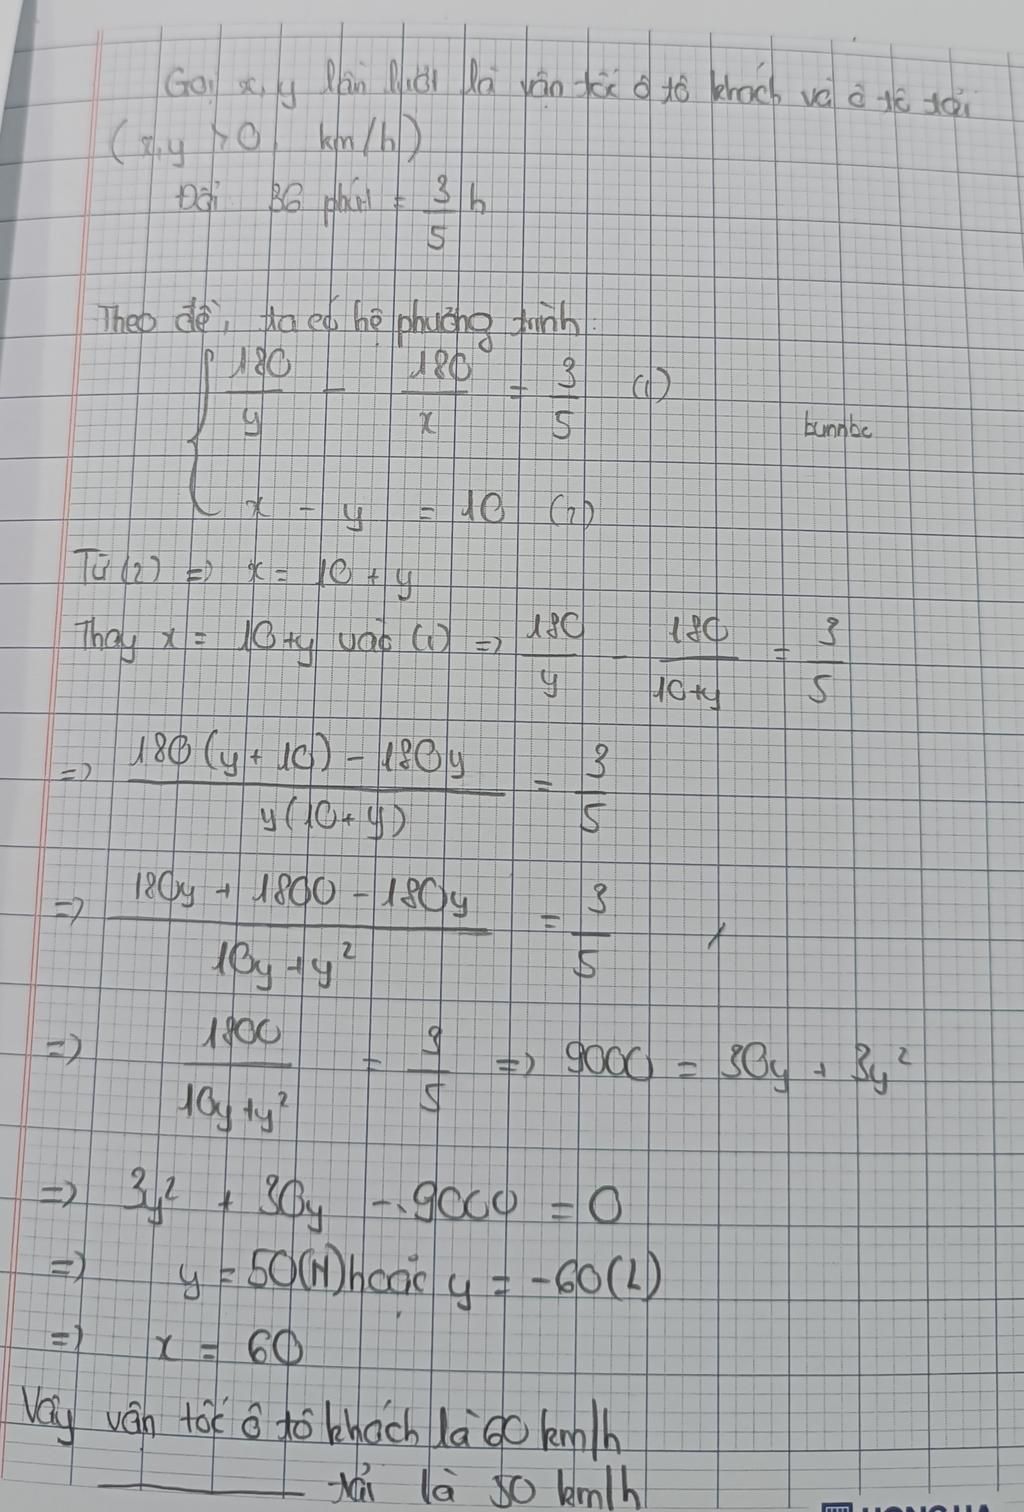 Gọi x, y lần lượt là vận tốc ô tô khách và ô tô tải
(x, y > 0, km/h)
Đổi 36 phút = 3/5 h
Theo đề, ta có hệ phương trình:
{ 180/y - 180/x = 3/5 (1)
bunnbc
x - y = 10 (2)
Từ (2) => x = 10 + y
Thay x = 10+y vào (1) => 180/y - 180/(10+y) = 3/5
=> (180(y+10) - 180y)/(y(10+y)) = 3/5
=> (180y + 1800 - 180y)/(10y + y²) = 3/5
=> 1800/(10y+y²) = 3/5 => 9000 = 30y + 3y²
=> 3y² + 30y - 9000 = 0
=> y = 50(N) hoặc y = -60(L)
=> x = 60
Vậy vận tốc ô tô khách là 60 km/h
tải là 50 km/h
HONG HA